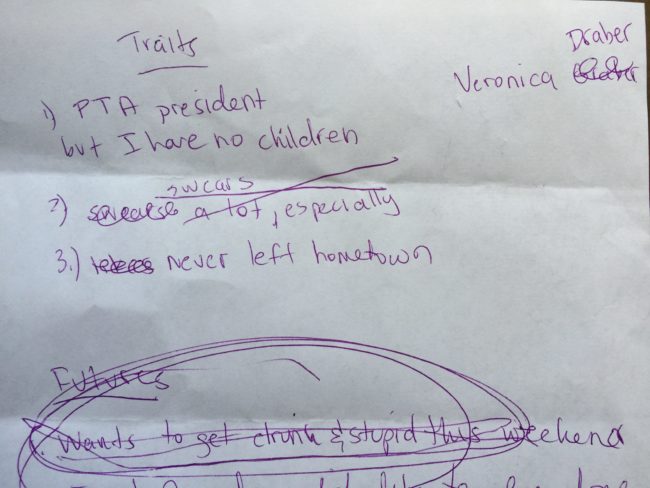 Traits
Draber
Veronica
1) PTA president
but I have no children
swears
2) swears a lot, especially
3.) never left hometown
Futures
Wants to get drunk & stupid this weekend